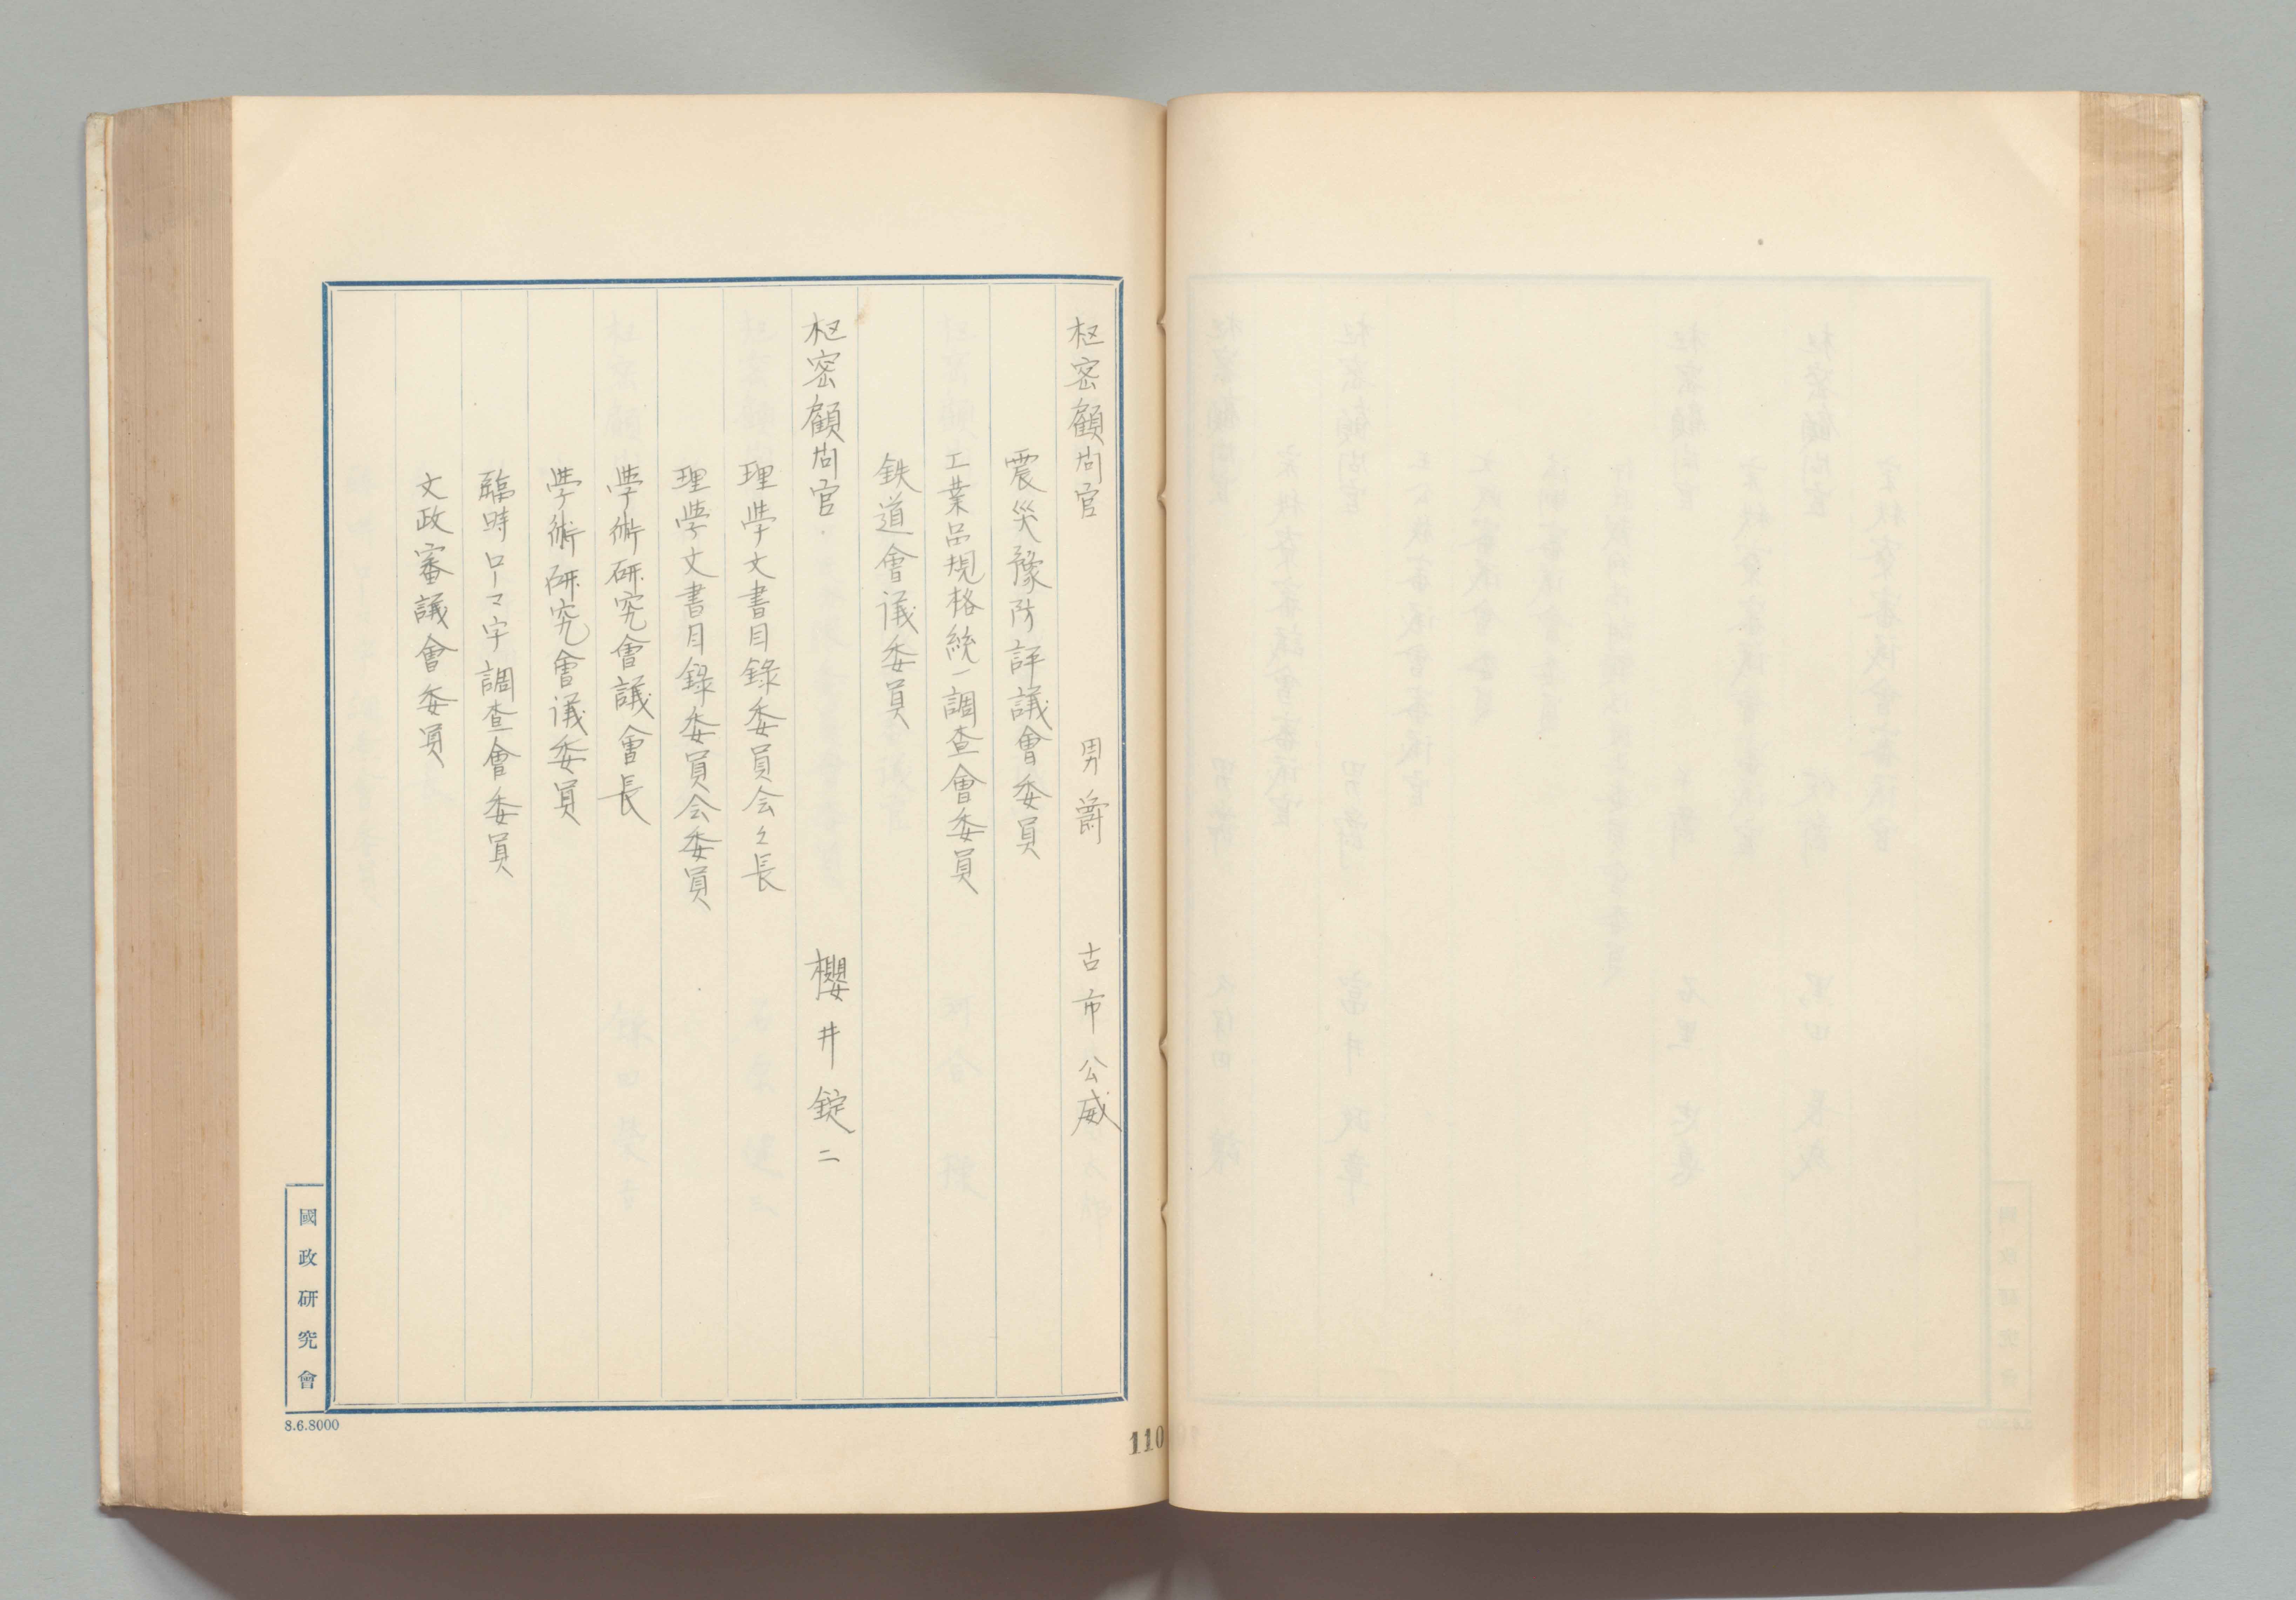 枢密顧問官 男爵 古市公威
震災豫防評議會委員
工業品規格統一調査會委員
鉄道會議委員
枢密顧問官 櫻井錠二
理学文書目錄委員会々長
理学文書目錄委員会委員
学術研究會議會長
学術研究會議委員
臨時ローマ字調査會委員
文政審議會委員
國政研究會
8.6.8000
110